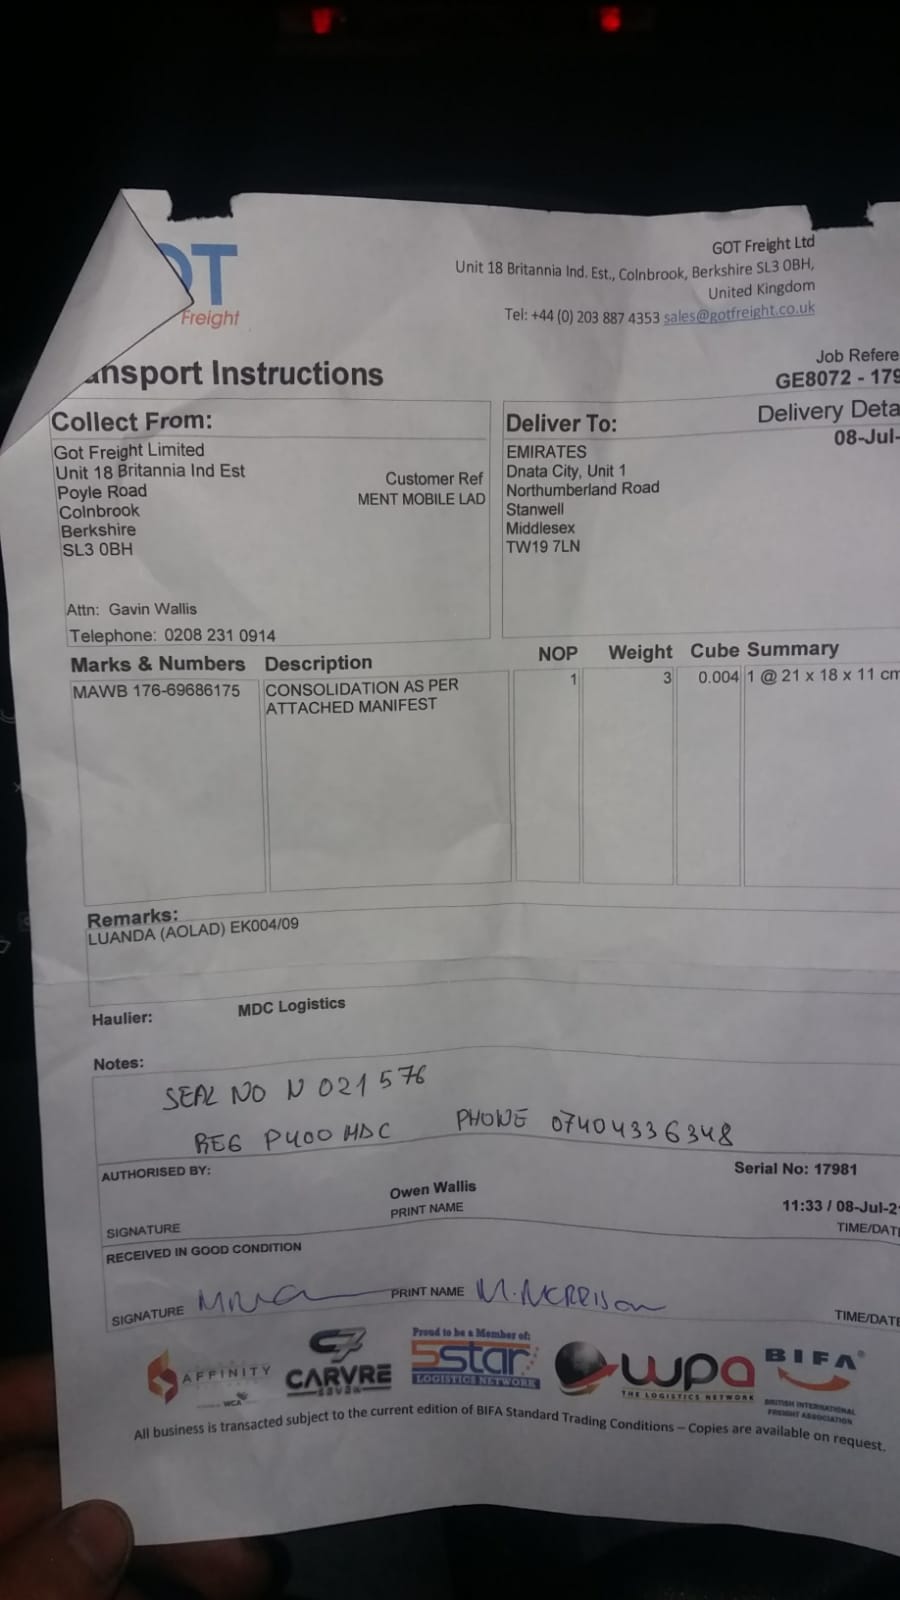 OT
Freight
GOT Freight Ltd
Unit 18 Britannia Ind. Est., Colnbrook, Berkshire SL3 0BH,
United Kingdom
Tel: +44 (0) 203 887 4353 sales@gotfreight.co.uk
ansport Instructions
Job Refere
GE8072 - 179
Collect From:
Got Freight Limited
Unit 18 Britannia Ind Est
Poyle Road
Colnbrook
Berkshire
SL3 0BH
Customer Ref
MENT MOBILE LAD
Attn: Gavin Wallis
Telephone: 0208 231 0914
Deliver To:
EMIRATES
Dnata City, Unit 1
Northumberland Road
Stanwell
Middlesex
TW19 7LN
Delivery Deta
08-Jul-
Marks & Numbers Description NOP Weight Cube Summary
MAWB 176-69686175 CONSOLIDATION AS PER 1 3 0.004 1 @ 21 x 18 x 11 cm
ATTACHED MANIFEST
Remarks:
LUANDA (AOLAD) EK004/09
Haulier: MDC Logistics
Notes:
SEAL NO N 021576
REG P400 MDC PHONE 07404336348
AUTHORISED BY:
Serial No: 17981
Owen Wallis
11:33 / 08-Jul-2
SIGNATURE PRINT NAME TIME/DATE
RECEIVED IN GOOD CONDITION
SIGNATURE PRINT NAME M. MORRISON TIME/DATE
AFFINITY
WCA
CARVRE
SEVEN
Proud to be a Member of:
5star
LOGISTICS NETWORK
wpa
THE LOGISTICS NETWORK
BIFA®
BRITISH INTERNATIONAL
FREIGHT ASSOCIATION
All business is transacted subject to the current edition of BIFA Standard Trading Conditions – Copies are available on request.